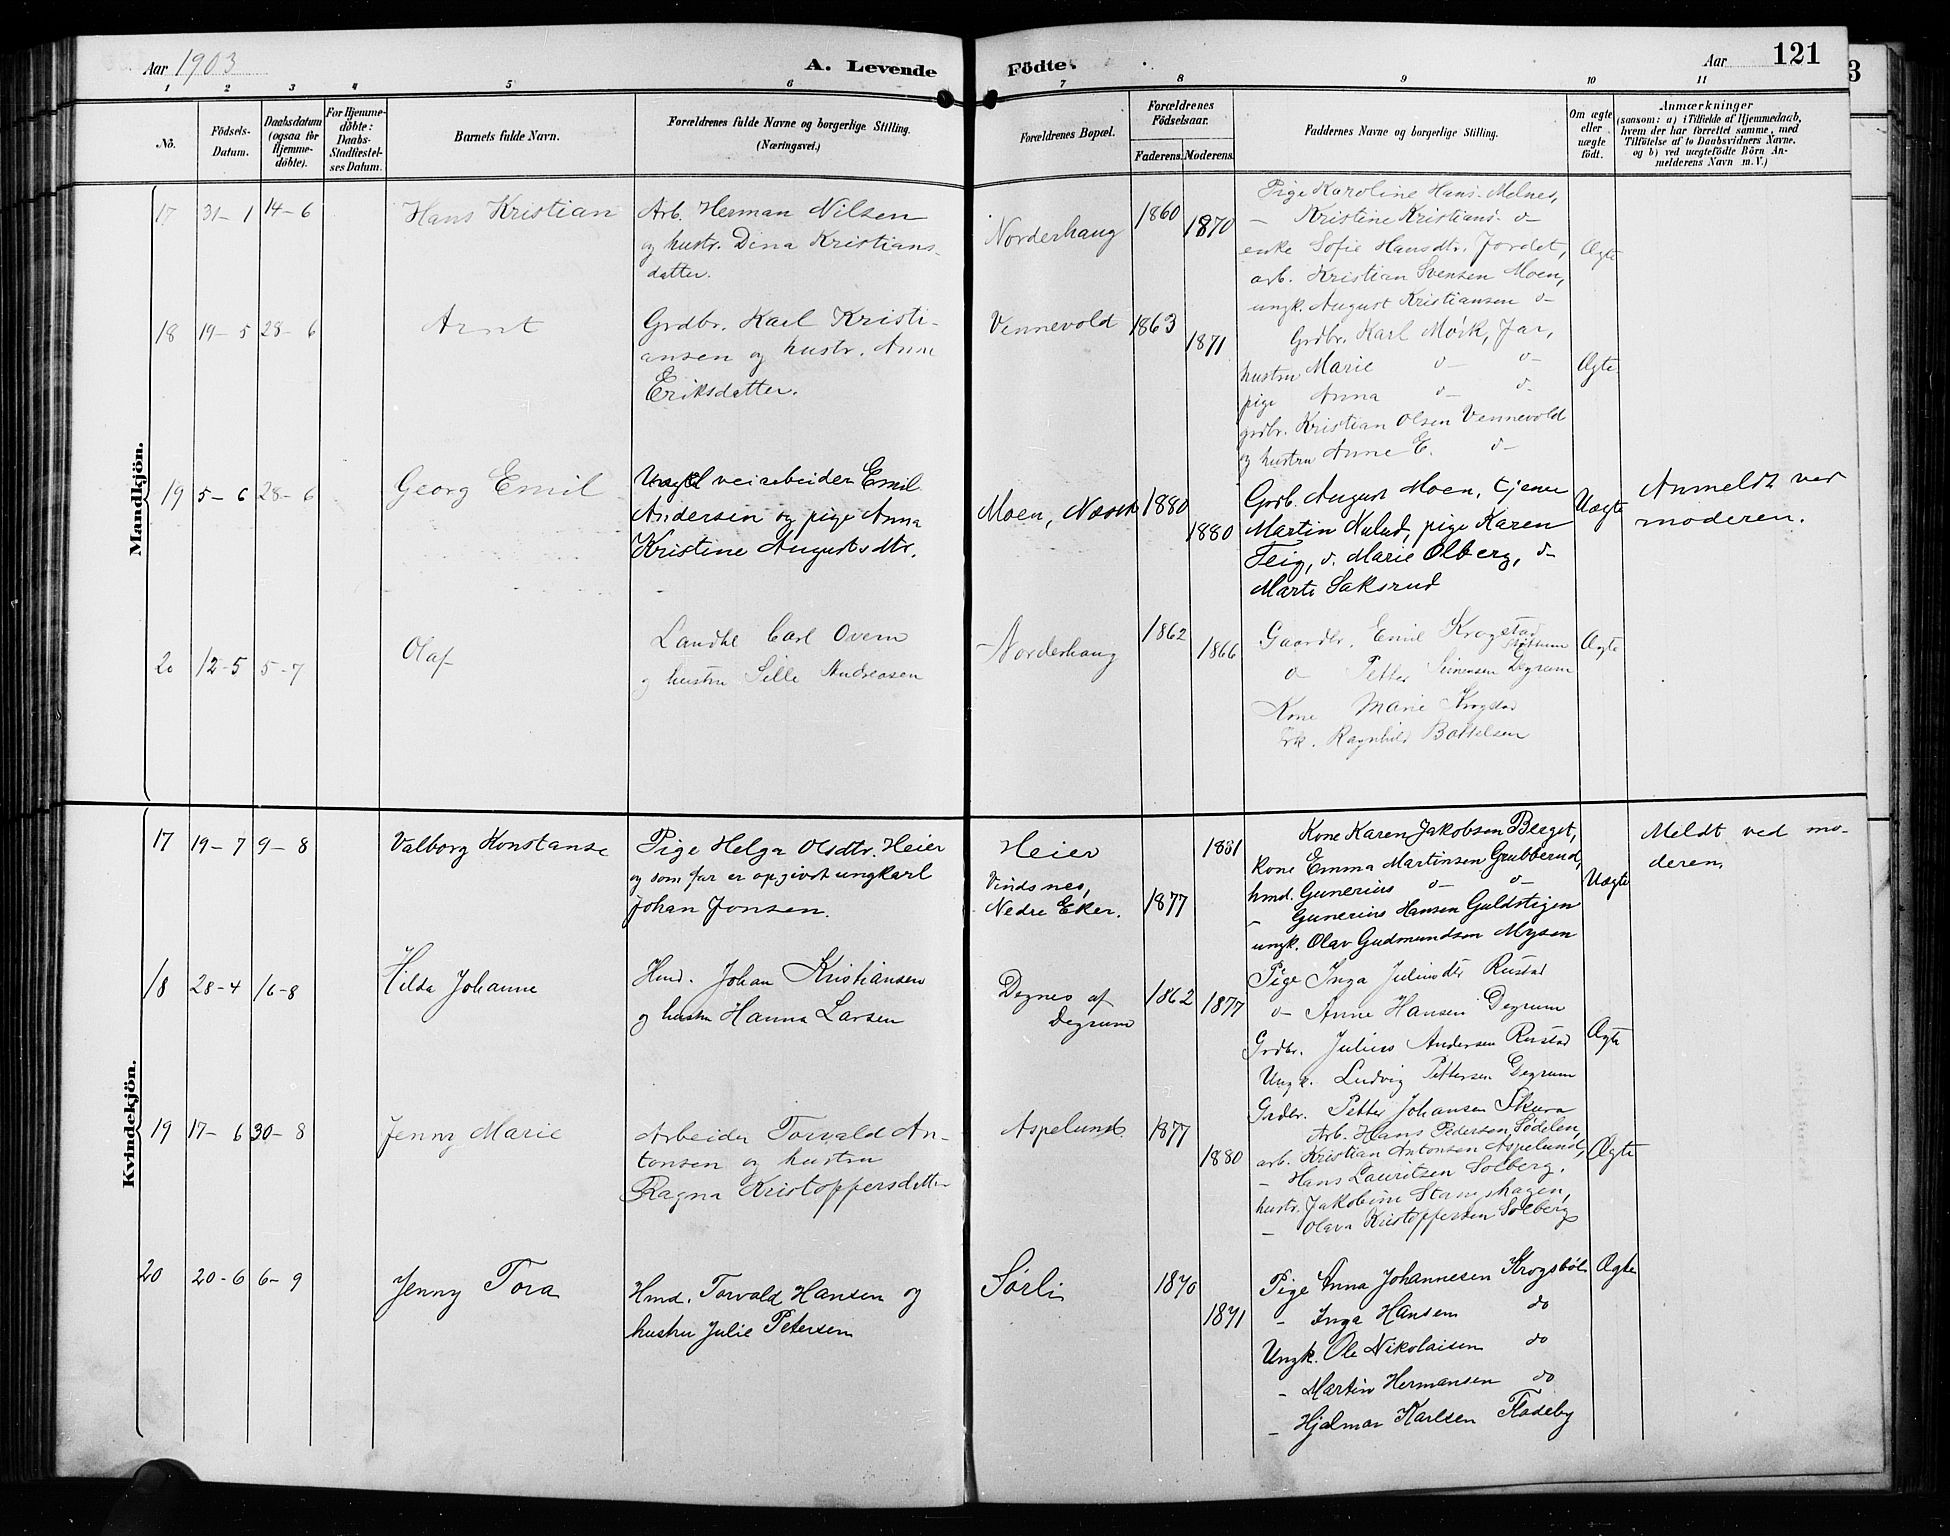 Aar 1903
A. Levende
Födte.
Aar
121
3
1 2 3 4 5 6 7 8 9 10 11
No.
Födsels-
Datum.
Daabsdatum
(ogsaa for
Hjemme-
döbte).
For Hjemme-
döbte:
Daabs-
Stadfæstel-
ses Datum.
Barnets fulde Navn.
Forældrenes fulde Navne og borgerlige Stilling.
(Næringsvei.)
Forældrenes Bopæl.
Forældrenes
Födselsaar.
Faderens. Moderens.
Faddernes Navne og borgerlige Stilling.
Om ægte
eller
uægte
født.
Anmærkninger
(saasom: a) i Tilfælde af Hjemmedaab,
hvem der har forrettet samme, med
Tilföielse af to Daabsvidners Navne,
og b) ved uægtefödte Börn An-
melderens Navn m. V.)
Mandkjön.
17 31-1 14-6 Hans Kristian
Arb. Herman Nilsen
og hustr. Dina Kristians-
datter.
Norderhaug 1860 1870
Pige Karoline Hans- Melnes,
- Kristine Kristians- o-
enke Sofie Hansdtr. Jordet,
arb. Kristian Svensen Moen,
ungk. August Kristiansen o-
Ægte
18 19-5 28-6 Arnt
Grdbr. Karl Kristi-
ansen og hustr. Anne
Eriksdatter.
Vennevold 1863 1871
Grdbr. Karl Mørk, Jar,
hustru Marie o- o-
pige Anna o- o-
grdbr. Kristian Olsen Vennevold
og hustru Anne E. o-
Ægte
19 5-6 28-6 Georg Emil
Ungkl veiarbeider Emil
Andersen og pige Anna
Kristine Augustsdtr.
Moen, 1880 1880
Grdb. August Moen, tjener
Martin pige Karen
Teig, o. Marie Olberg, o-
Marte Saksrud
Uægte
Anmeldt ved
moderen.
20 12-5 5-7 Olaf
Landhl Carl Overn
og hustru Sille Andreasen
Norderhaug 1862 1866
Gaardbr. Emil Krogstad
o- Petter Simensen Degrum
Kone Marie Krogstad
Frk. Ragnhild Bottelsen
Ægte
Kvindekjön.
17 19-7 9-8 Valborg Konstanse
Pige Helga Olsdtr. Heier
og som far er opgivet ungkarl
Johan Jonsen.
Heier
Vindsnes,
Nedre Eker. 1877 1881
Kone Karen Jakobsen Berget,
kone Emma Martinsen Grubberud,
hmd. Gunerius o- o-
- Gunerius Hansen Guldstigen
ungk. Olav Gudmundsen Mysen
Uægte
Meldt ved mo-
deren.
18 28-4 16-8 Hilda Johanne
Hmd. Johan Kristiansen
og hustru Hanna Larsen
Degnes af
Degrum 1862 1877
Pige Inga Juliusdtr Rustad
o- Anne Hansen Degrum
Grdbr. Julius Andersen Rustad
Ungk. Ludvig Pettersen Degrum
Grdbr. Petter Johansen Skura
Ægte
19 17-6 30-8 Jenny Marie
Arbeider Torvald An-
tonsen og hustru
Ragna Kristoffersdatter
Aspelund. 1877 1880
Arb. Hans Pedersen Sødelen,
arb. Kristian Antonsen Aspelund,
- Hans Lauritsen Solberg.
hustr. Jakobine Stangshagen,
- Olava Kristoffersen Solberg
Ægte
20 20-6 6-9 Jenny Tora
Hmd. Torvald Hansen og
hustru Julie Petersen
Sørli 1870 1871
Pige Anna Johannesen Krogsbøl
- Inga Hansen do
Ungk. Ole Nikolaisen do
- Martin Hermansen do
- Hjalmar Karlsen Fladeby
Ægte